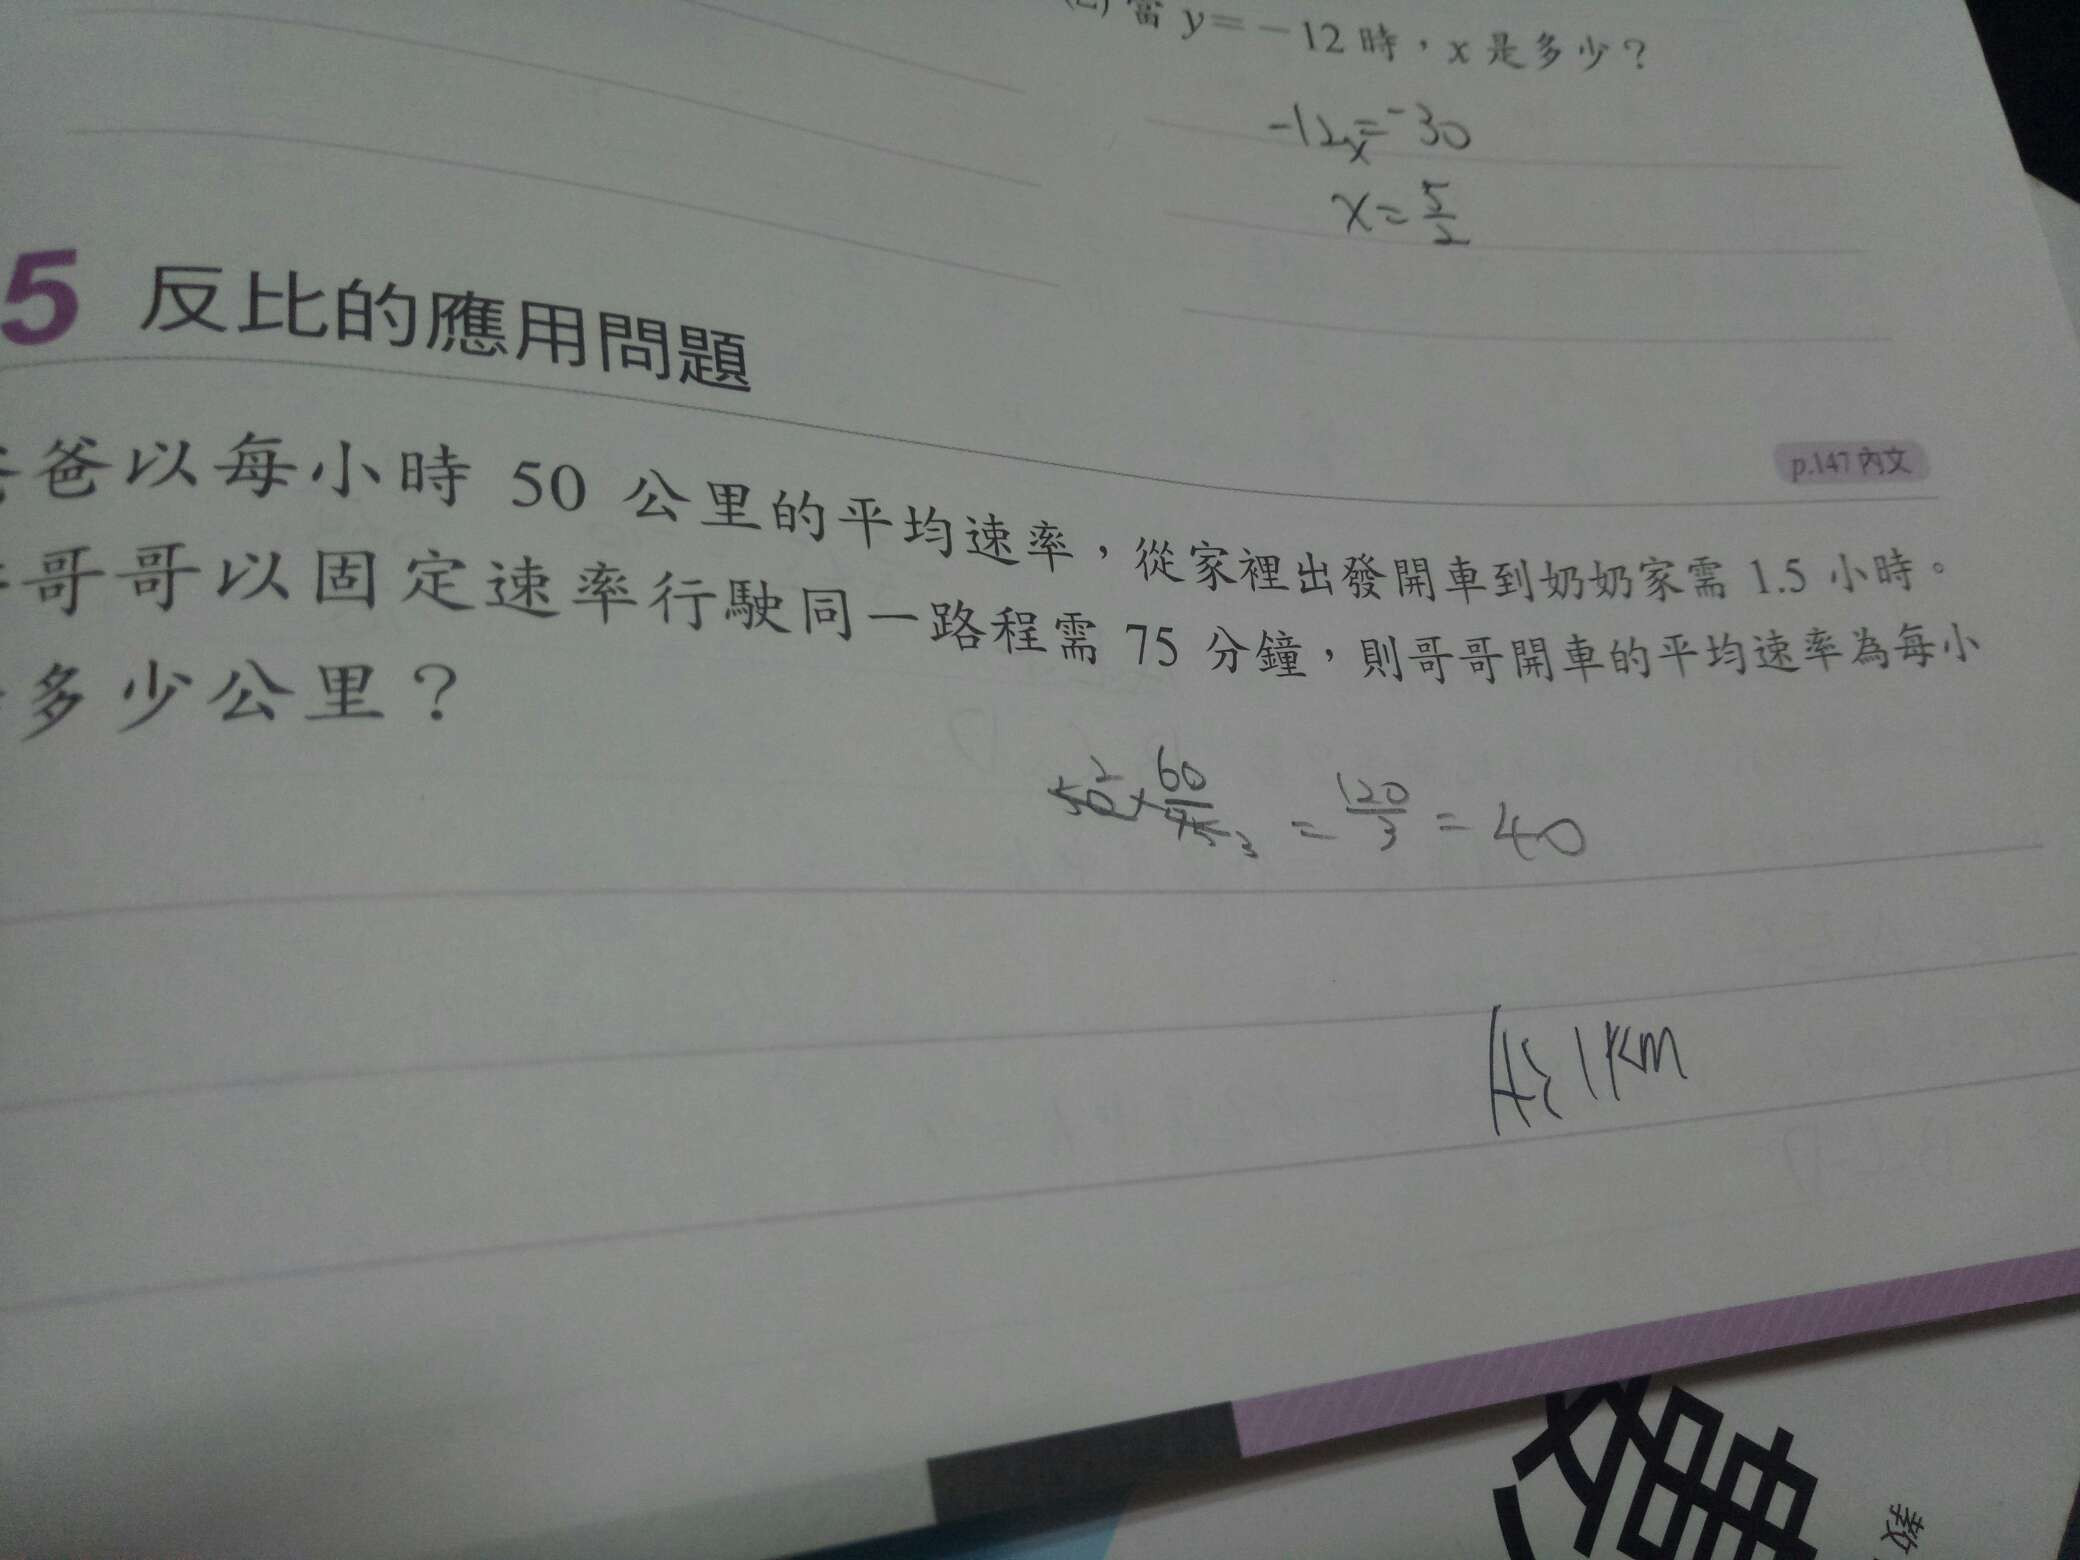 當 y=－12 時，x 是多少？
-12x=-30
x=5/2
5 反比的應用問題
p.147 內文
爸以每小時 50 公里的平均速率，從家裡出發開車到奶奶家需 1.5 小時。
哥哥以固定速率行駛同一路程需 75 分鐘，則哥哥開車的平均速率為每小
多少公里？
50 2 × 60/75 3 = 120/3 = 40
1km
教